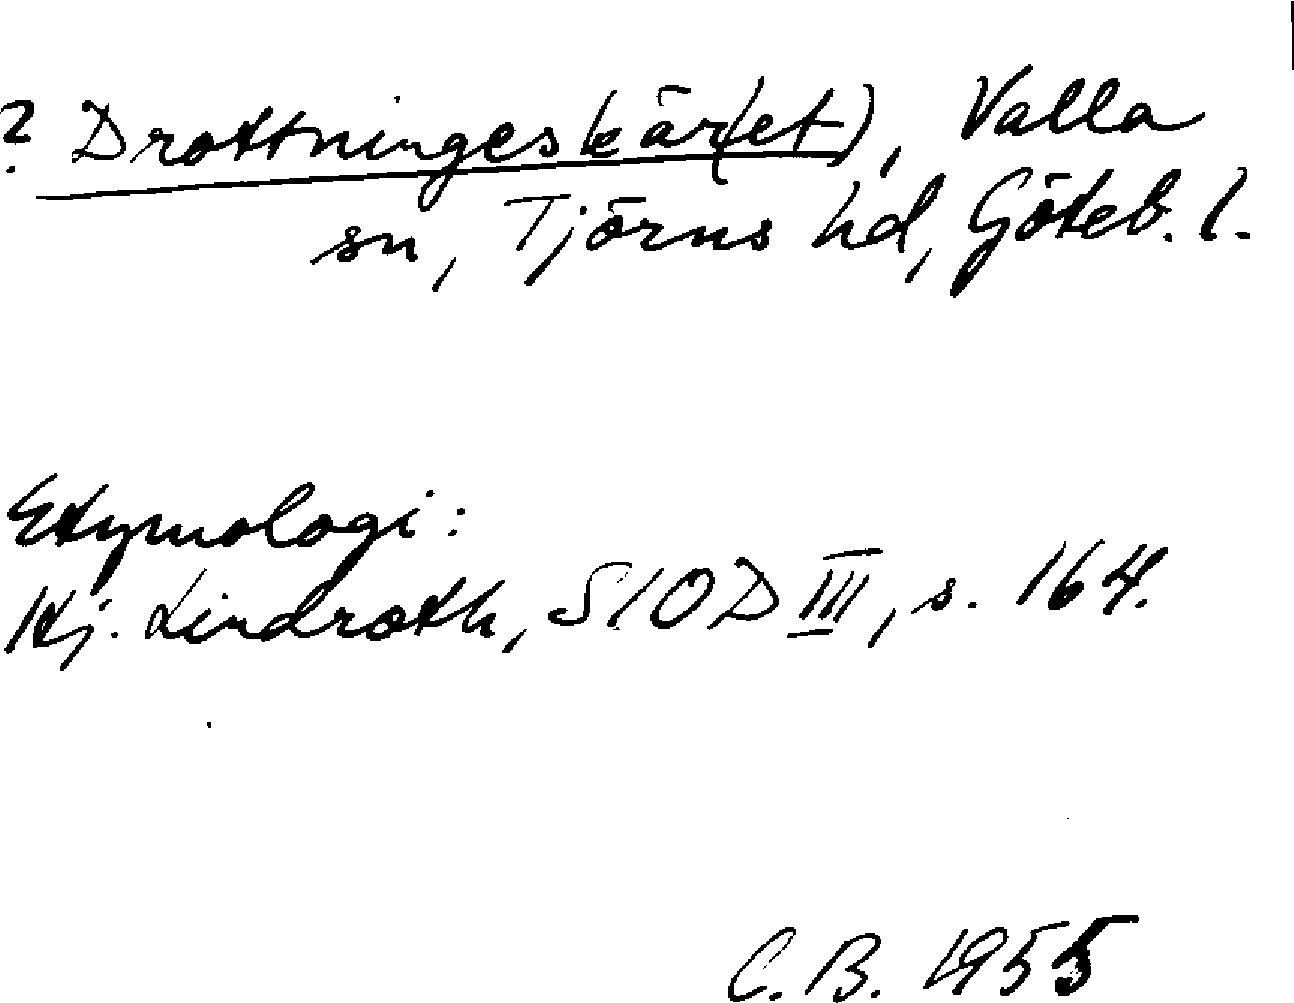 ? Drottningeskär(et), Valla
sn, Tjörns hd, Göteb. l.
Etymologi:
Hj. Lindroth, SIOD III, s. 164.
C. B. 1955